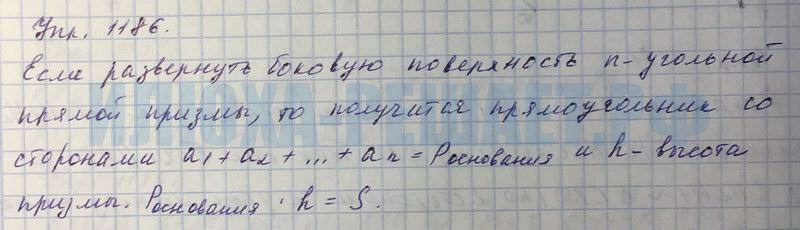 Упр. 1186.
Если развернуть боковую поверхность n-угольной
прямой призмы, то получится прямоугольник со
сторонами a₁ + a₂ + ... + aₙ = Pоснования и h - высота
призмы. Pоснования · h = S.